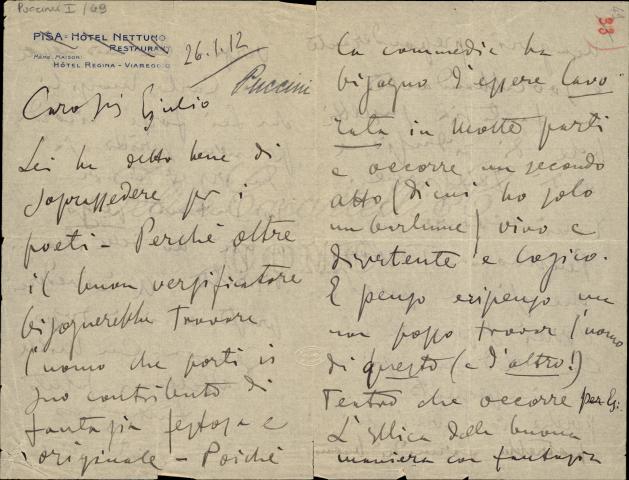 Puccini I / 69
PISA - HÔTEL NETTUNO
RESTAURANT
MÊME MAISON:
HÔTEL REGINA - VIAREGGIO
26.1.12
Puccini
Caro Giulio
Lei ha detto bene di
soprassedere per i
poeti - Perchè oltre
il buon versificatore
bisognerebbe trovare
l'uomo che porti il
suo contributo di
fantasia festosa e
originale - Poichè
33
la commedia ha
bisogno d'essere lavo
rata in molte parti
e occorre un secondo
atto (di cui ho solo
un barlume) vivo e
divertente e logico.
E penso e ripenso ma
non posso trovar l'uomo
di questo (e d'altro!)
Teatro che occorre
L' della buona
maniera con fantasia